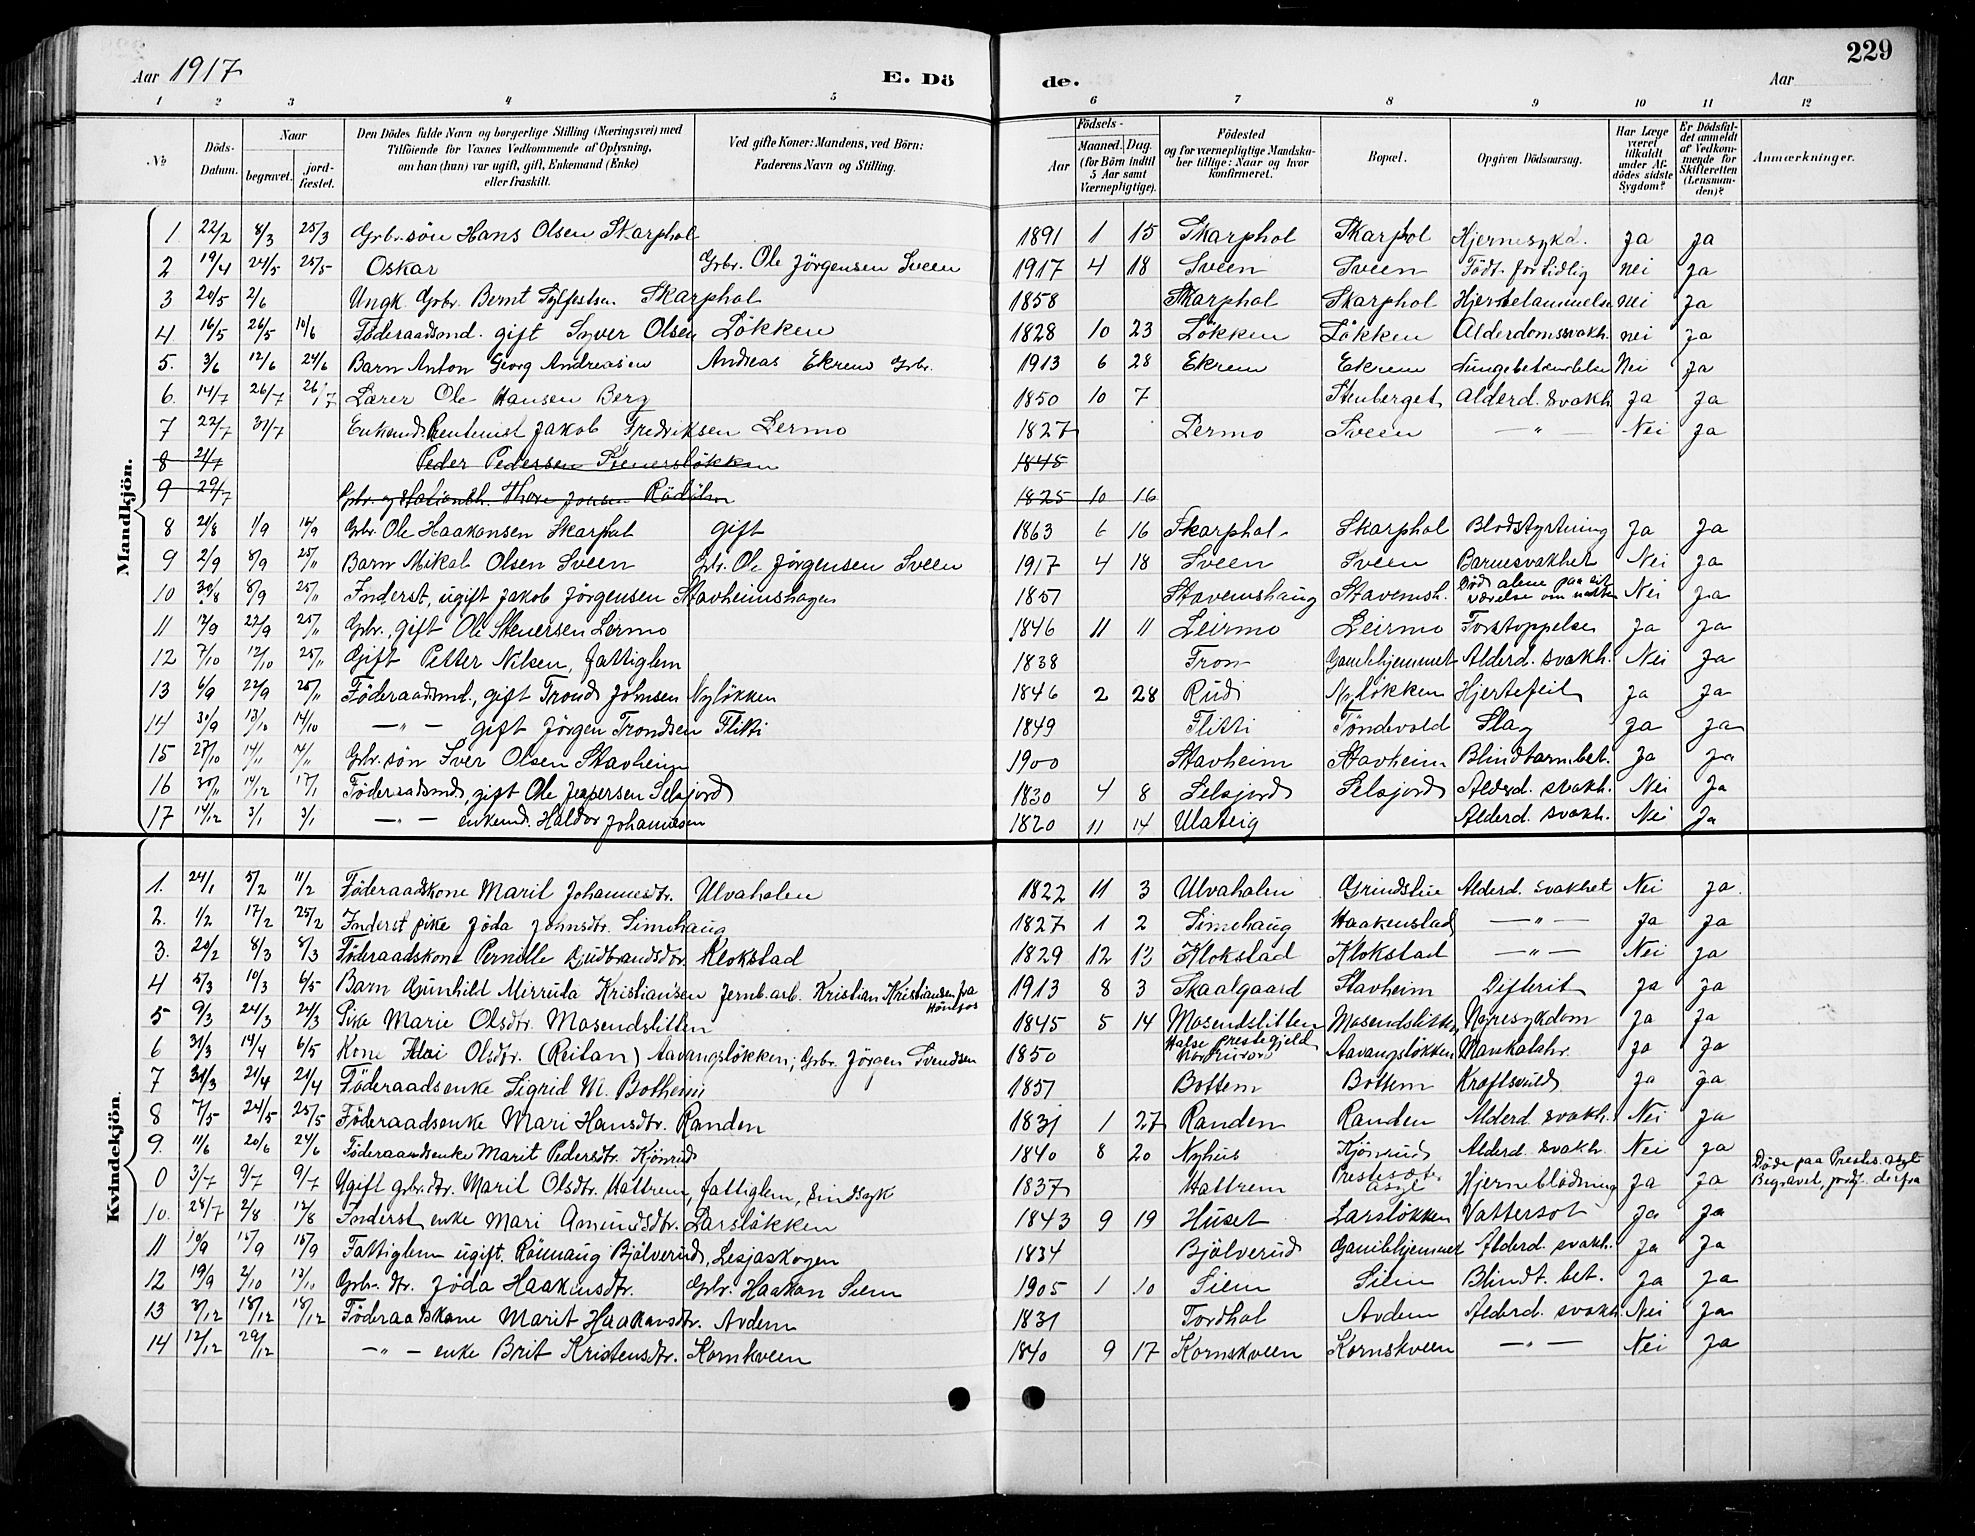 229
Aar 1917 E. Dö de. Aar
1 2 3 4 5 6 7 8 9 10 11 12
No
Döds-Datum.
Naar
begravet.
jord-fæstet.
Den Dödes fulde Navn og borgerlige Stilling (Næringsvei) med
Tilföiende for Voxnes Vedkommende af Oplysning,
om han (hun) var ugift, gift, Enkemand (Enke)
eller fraskilt.
Ved gifte Koner: Mandens, ved Börn:
Faderens Navn og Stilling.
Födsels-
Aar
Maaned. Dag.
(for Börn indtil
5 Aar samt
Værnepligtige).
Födested
og for værnepligtige Mandska-
ber tillige: Naar og hvor
konfirmeret.
Bopæl.
Opgiven Dödsaarsag.
Har Læge
været
tilkaldt
under Af-
dödes sidste
Sygdom?
Er Dödsfal-
det anmeldt
af Vedkom-
mende for
Skifteretten
(Lensman-
den)?
Anmærkninger.
Mandkjön.
1 22/2 8/3 25/3 Grbr.søn Hans Olsen Skarphol 1891 1 15 Skarphol Skarphol Hjernesykd. Ja Ja
2 19/4 24/5 25/5 Oskar Grbr. Ole Jörgensen Sveen 1917 4 18 Sveen Sveen Födt for tidlig nei Ja
3 20/5 2/6 Ungk Grbr. Bernt Sylfestsen Skarphol 1858 Skarphol Skarphol Hjertelammelse nei Ja
4 16/5 26/5 10/6 Föderaadsmd. gift Syver Olsen Lökken 1828 10 23 Lökken Lökken Alderdomssvakh. nei Ja
5. 3/6 12/6 24/6 Barn Anton Georg Andreasen Andreas Ekrem Grbr. 1913 6 28 Ekrem Ekrem Lungebetændelse Nei Ja
6. 14/7 26/7 26/7 Lærer Ole Hansen Berg 1850 10 7 Stenberget Alderd. svakh. Ja Ja
7 22/7 31/7 Enkemd. Rentenist Jakob Fredriksen Lermo 1827 Lermo Sveen —"— Nei Ja
8 21/7 Peder Pedersen Stenerslökken 1845
9 29/7 Grbr. og Thore Jonsen 1825 10 16
8 21/8 1/9 14/9 Grbr. Ole Haakonsen Skarphol gift 1863 6 16 Skarphol Skarphol Blodstyrtning Ja Ja
9 2/9 8/9 25/11 Barn Mikal Olsen Sveen Grbr. Ole Jörgensen Sveen 1917 4 18 Sveen Sveen Barnesvakhet Nei Ja
10 30/8 8/9 25/11 Inderst, ugift Jakob Jörgensen Stavheimshagen 1851 Stavemshaug Stavemsh. Död alene paa sit værelse om natten Nei Ja
11 12/9 22/9 25/11 Grbr., gift Ole Stenersen Lermo 1846 11 11 Leirmo Leirmo Forstoppelse Ja Ja
12 7/10 12/10 25/11 Gift Petter Nilsen, fattiglem 1838 Tron Gamlehjemmet Alderd. svakh. Nei Ja
13 6/9 22/9 25/11 Föderaadsmd., gift Trond Johnsen Nylökken 1846 2 28 Rud Nylökken Hjertefeil Ja Ja
14 30/9 13/10 14/10 —"— gift Jörgen Trondsen Flitti 1849 Flitti Töndevold Slag Ja Ja
15 27/10 14/11 14/11 Grbr.sön Iver Olsen Stavheim 1900 Stavheim Stavheim Blindtarmbet. Ja Ja
16 30/11 14/12 17/1 Föderaadsmd, gift Ole Jespersen Selsjord 1830 4 8 Selsjord Selsjord Alderd. svakh. Nei Ja
17 14/12 3/1 3/1 —"— enkemd. Haldor Johannesen 1820 11 14 Alderd. svakh. Nei Ja
Kvindekjön.
1. 24/1 5/2 11/2 Föderaadskone Marit Johannesdtr. Ulvaholen 1822 11 3 Ulvaholen Grindstue Alderd. svakhet Nei Ja.
2. 1/2 17/2 25/2 Inderst pike Jöda Johnsdtr. Limohaug 1827 1 2 Limehaug Haakenstad —"— Ja Ja
3. 20/2 8/3 8/3 Föderaadskone Pernille Gudbrandsdtr. Klokstad 1829 12 13 Klokstad Klokstad —"— Nei Ja
4 5/3 10/3 6/5 Barn Gunhild Mirruta Kristiansen Jernb.arb. Kristian Kristiansen fra Hönefos 1913 8 3 Skaalgaard Stavheim Difterit Ja Ja
5 9/3 24/3 24/3 Pike Marie Olsdtr. Mosendslitten 1845 5 14 Mosendslitten Mosendslitten Nyresykdom Ja Ja
6 31/3 14/4 6/5 Kone Olsdtr. (Reitan) Aavangslökken; Grbr. Jörgen Svendsen 1850 Halse prestegjeld Nordmöre Aavangslökken Mavekatahr. Ja Ja
7 31/3 21/4 21/4 Föderaadsenke Sigrid M. Botheim 1851 Bottem Bottem Kræftsvulst Ja Ja
8 7/5 24/5 25/5 Föderaadsenke Mari Hansdtr. Randen 1831 1 27 Randen Randen Alderd. svakh. Nei Ja
9. 11/6 20/6 24/6 Föderaadsenke Marit Pedersdtr. Kjönrud 1840 8 20 Nyhus Kjönrud Alderd. svakh. Nei Ja
0 3/7 9/7 9/7 Ugift grbr.dtr. Marit Olsdtr. Hattrem, fattiglem, sindssyk 1837 Hattrem Prestesæter asyl Hjerneblödning Ja Ja Döde paa Prestes. asyl Begravet, jordf. derfra
10. 24/7 2/8 12/8 Inderst enke Mari Amundsdtr. Larslökken 1843 9 19 Huset Larslökken Vattersot Ja Ja
11 10/9 15/9 15/9 Fattiglem ugift. Rönnaug Bjölverud, Lesjaskogen 1834 Bjölverud Gamlehjemmet Alderd. svakh. Ja Ja
12 19/9 2/10 13/10 Grbr. dtr. Jöda Haakensdtr. Grbr. Haakon Siem 1905 1 10 Siem Siem Blindt. bet. Ja Ja
13 3/12 18/12 18/12 Föderaadskone Marit Haakonsdtr. Avdem 1831 Tordhol Avdem Alderd. svakh. Nei Ja
14 12/12 29/12 —"— enke Brit Kristensdtr. Kornkveen 1840 9 17 Kornskveen Kornskveen —"— Nei Ja